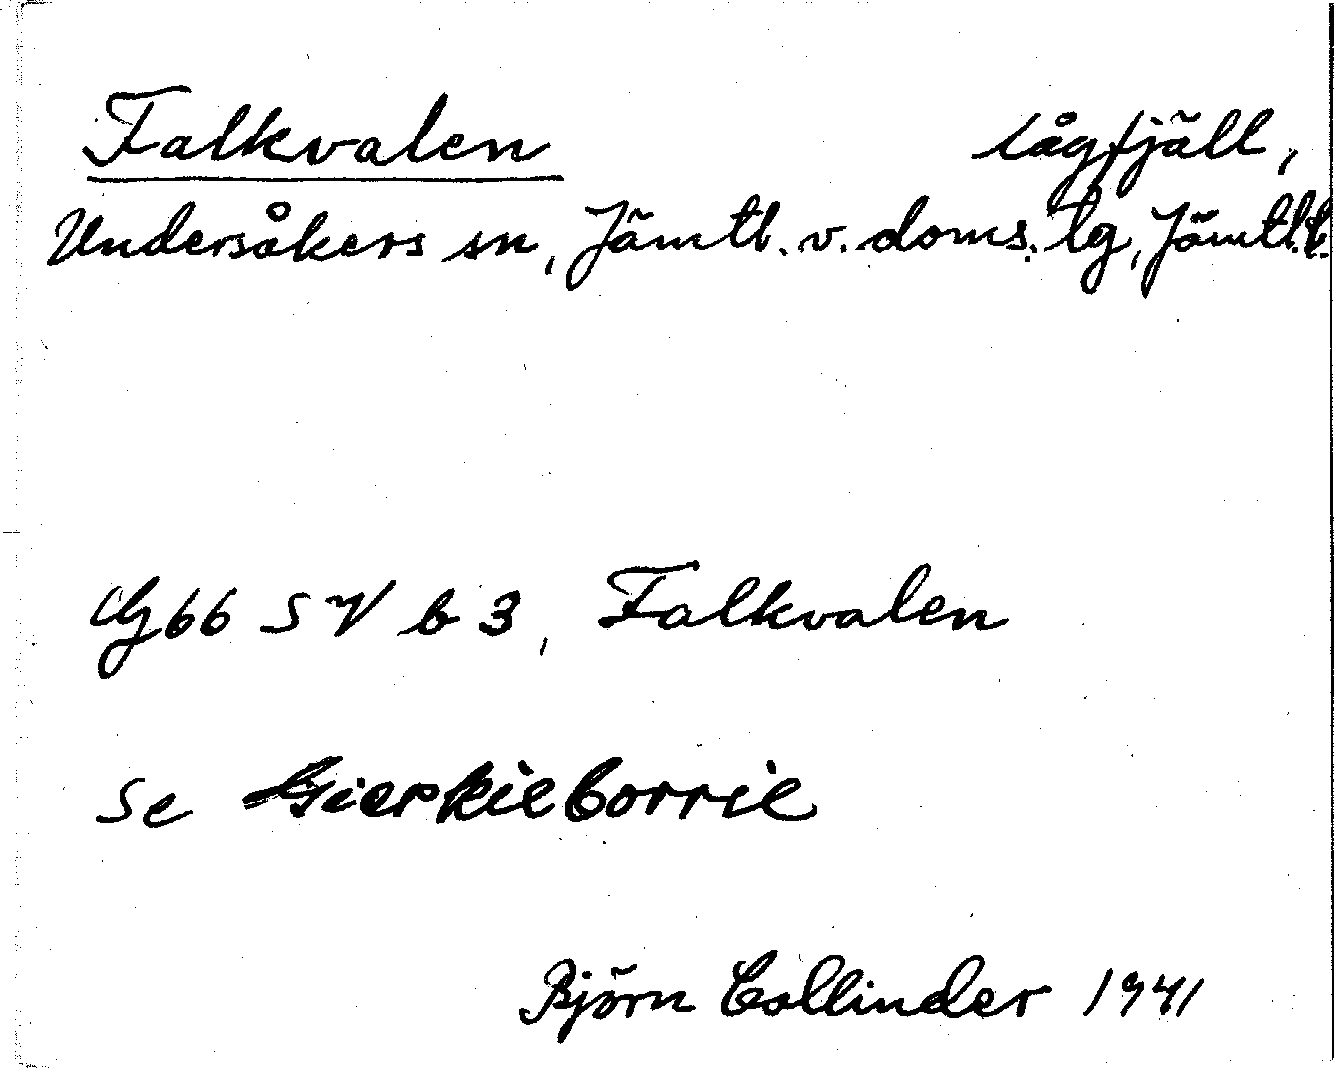 Falkvalen lågfjäll,
Undersåkers sn, Jämtl. v. doms. lg, Jämtl. l.
Gg 66 SV b 3, Falkvalen
se Gierkieborrie
Björn Collinder 1941